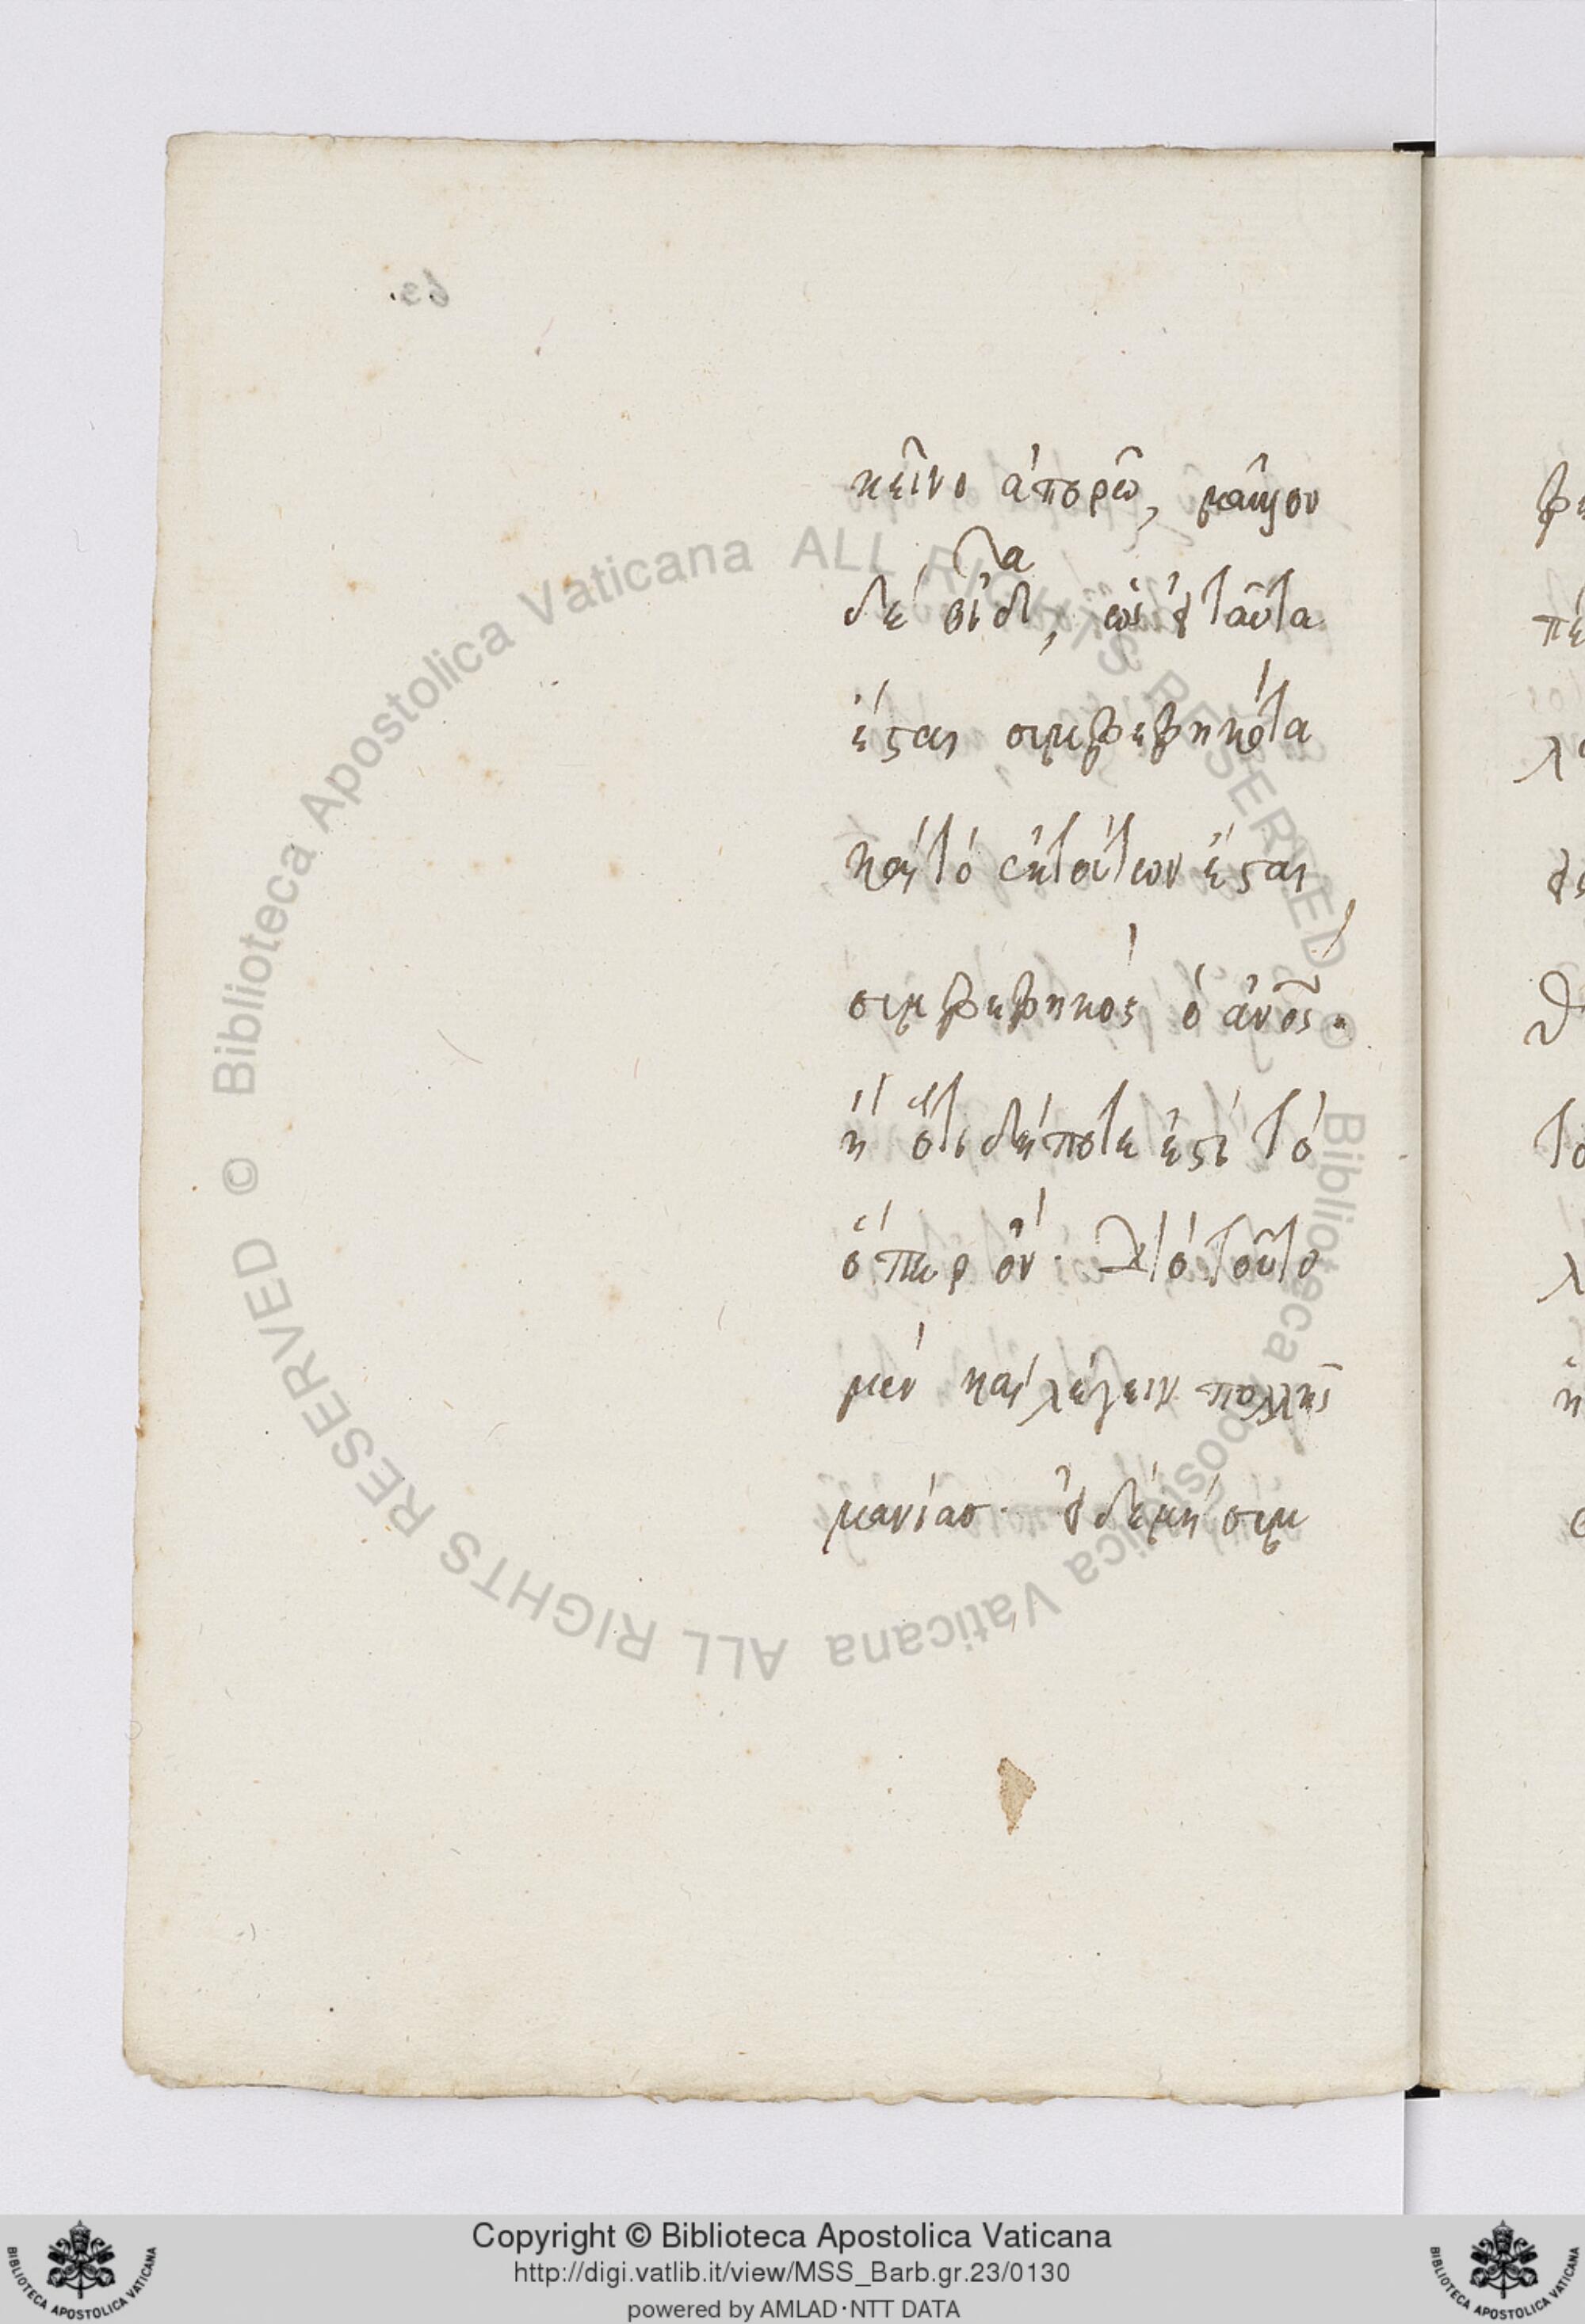 κεῖνο ἀπορῶ, μᾶλλον
δὲ οἶδα, ὡς ἢ ταῦτα
ἔσται συμβεβηκότα
καὶ τὸ ἐκ τούτων ἔσται
συμβεβηκὸς ὁ ἄνος.
ἢ ὅτι δήποτε ἐστὶ τὸ
ὅπερ ὄν. ἀλλὰ τὸ τοῦτο
μὲν καὶ λέγειν πολλῆς
μανίας. εἰ δὲ μὴ συμ
Copyright © Biblioteca Apostolica Vaticana
http://digi.vatlib.it/view/MSS_Barb.gr.23/0130
powered by AMLAD·NTT DATA
© Biblioteca Apostolica Vaticana ALL RIGHTS RESERVED © Biblioteca Apostolica Vaticana ALL RIGHTS RESERVED
BIBLIOTECA APOSTOLICA VATICANA
BIBLIOTECA APOSTOLICA VATICANA